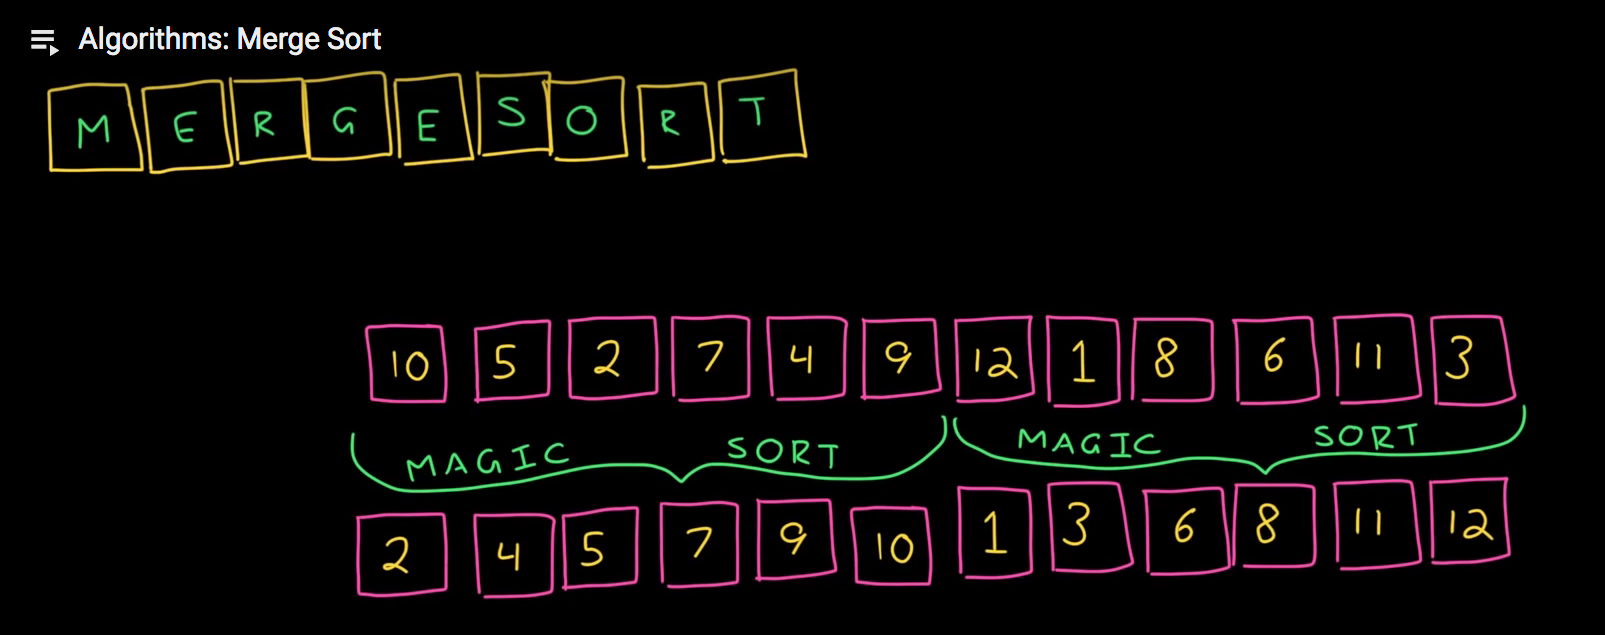 Algorithms: Merge Sort
M E R G E S O R T
10 5 2 7 4 9 12 1 8 6 11 3
MAGIC SORT MAGIC SORT
2 4 5 7 9 10 1 3 6 8 11 12